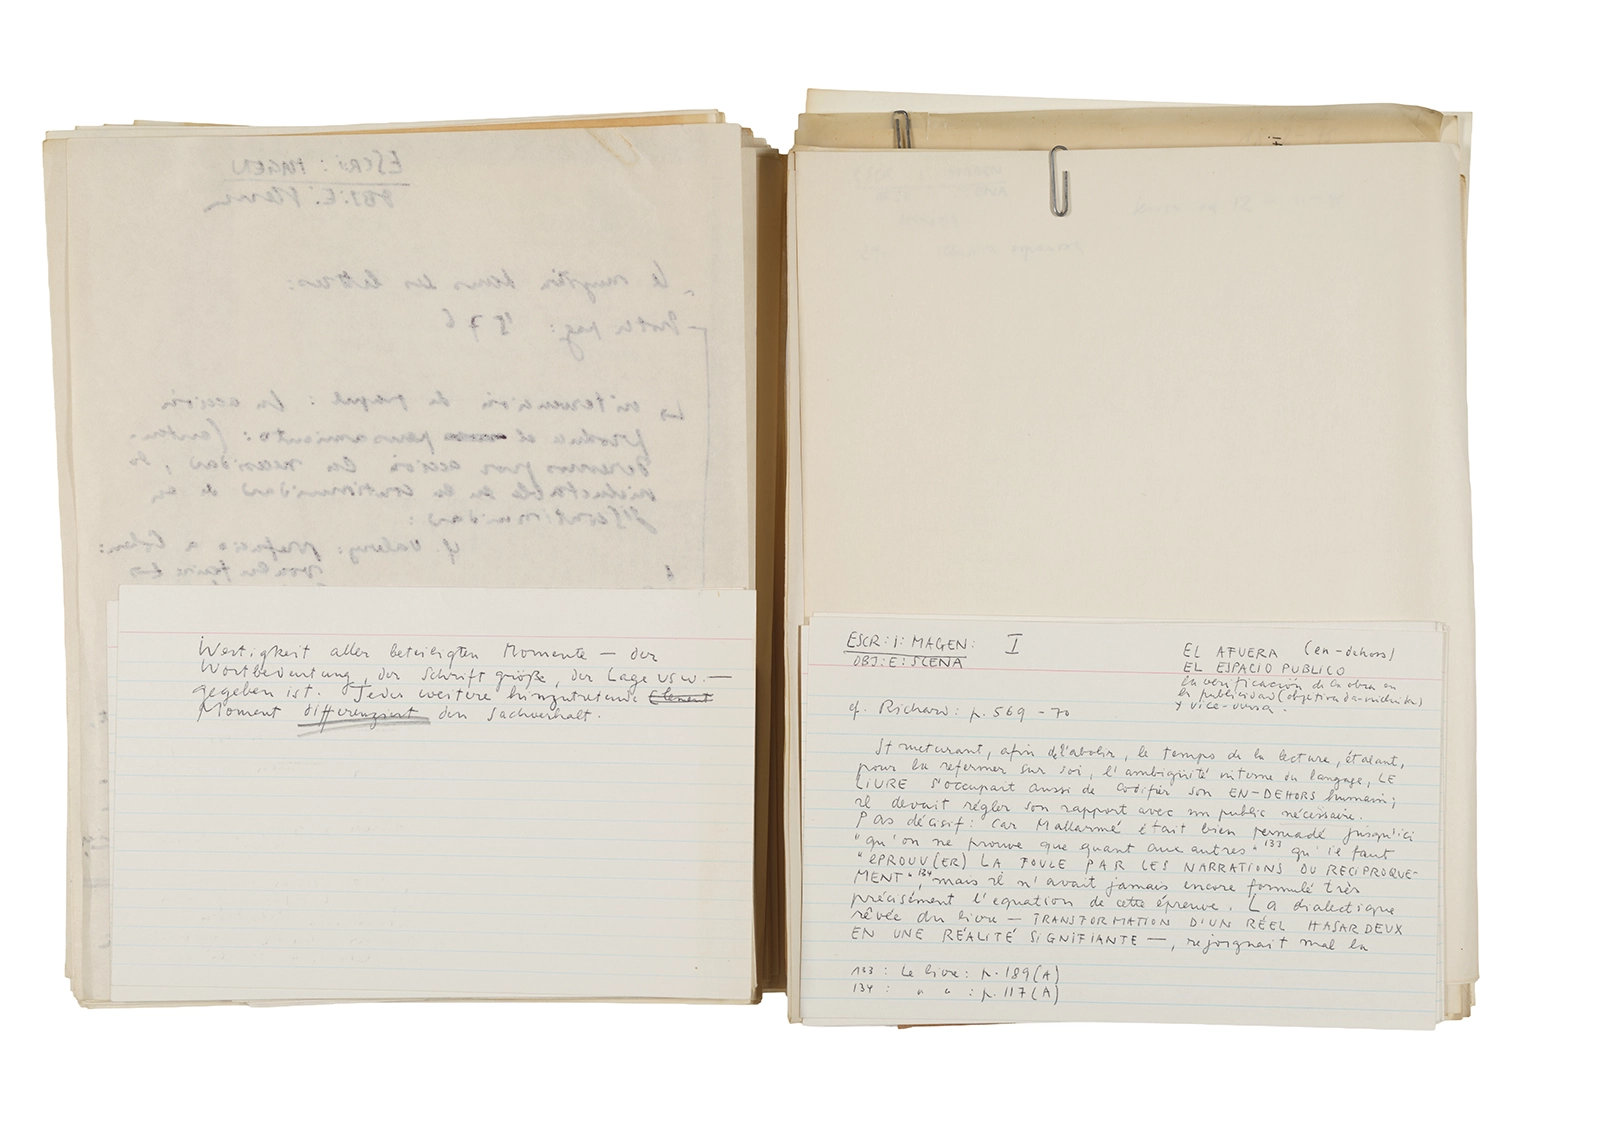 ESCR: I: MAGEN
OBJ: E:
dans les lettres:
pag: 1876
intervención de papel: la acción
produce el pensamiento: (enten-
deremos por acción la necesidad, lo
ineluctable de la continuidad de
discontinuidad:
cf. Valéry: prefacio a Cohen:
Wertigkeit aller beteiligten Momente — der
Wortbedeutung, der Schriftgröße, der Lage usw. —
gegeben ist. Jedes weitere hinzutretende Element
Moment differenziert den Sachverhalt.
ESCR: I: MAGEN: I
OBJ: E: SCENA
EL AFUERA (en-dehors)
EL ESPACIO PUBLICO
la verificación de la obra en
la publicidad (objetivada-)
y vice-versa.
cf. Richard: p. 569 - 70
Structurant, afin de l'abolir, le temps de la lecture, étalant,
pour la refermer sur soi, l'ambigüité interne du langage, LE
LIVRE s'occupait aussi de codifier son EN-DEHORS humain;
il devait régler son rapport avec un public nécessaire.
Pas décisif: car Mallarmé était bien persuadé jusqu'ici
"qu'on ne prouve que quant aux autres" 133 qu'il faut
"éPROUV(ER) LA FOULE PAR LES NARRATIONS OU RECIPROQUE-
MENT" 134, mais il n'avait jamais encore formulé très
précisément l'equation de cette épreuve. La dialectique
rêvée du livre — TRANSFORMATION D'UN RÉEL HASARDEUX
EN UNE RÉALITÉ SIGNIFIANTE —, rejoignait mal la
133: Le livre: p. 189(A)
134: " " : p. 117(A)